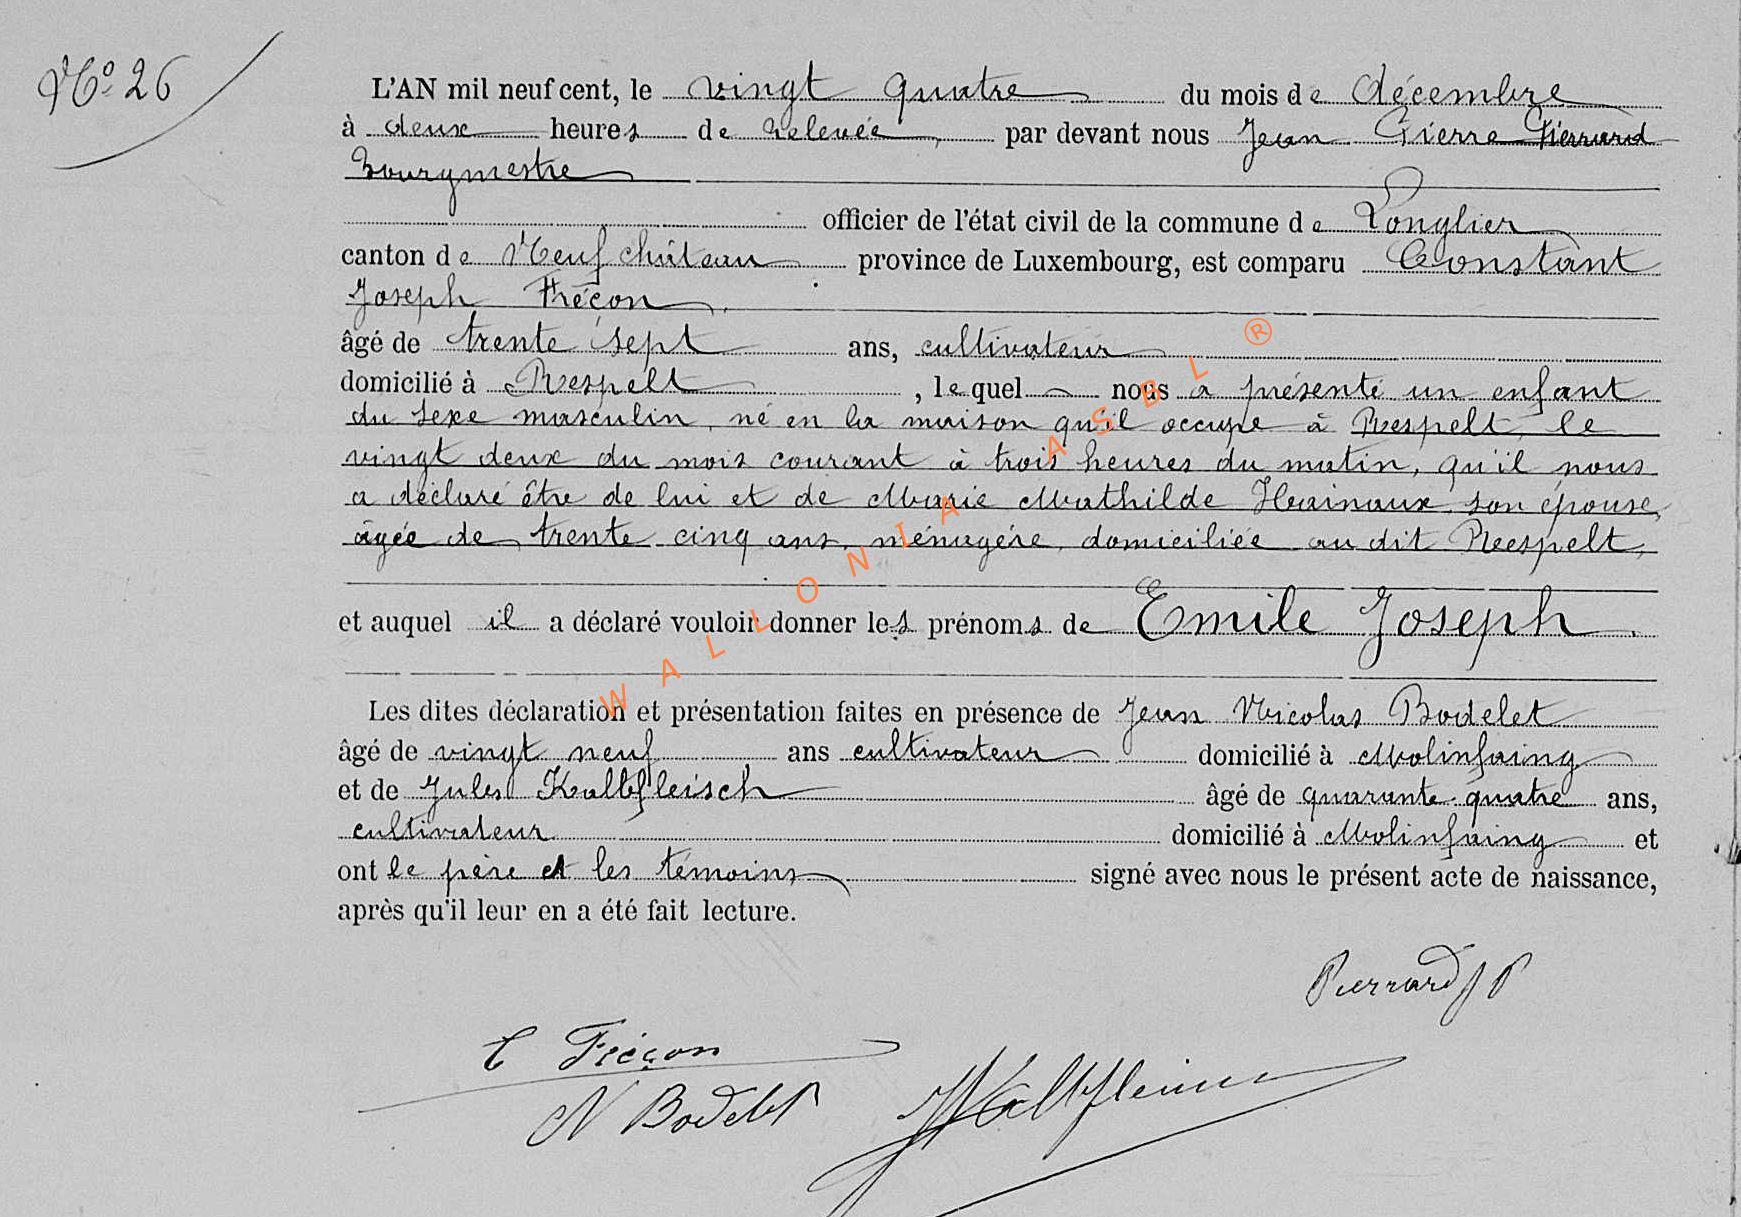 No 26
L'AN mil neuf cent, le vingt quatre du mois de décembre
à deux heures de relevée, par devant nous Jean Pierre Pierrard
Bourgmestre
officier de l'état civil de la commune de Longlier
canton de Neufchâteau province de Luxembourg, est comparu Constant
Joseph Fréçon,
âgé de trente sept ans, cultivateur
domicilié à Respelt, lequel nous a présenté un enfant
du sexe masculin, né en la maison qu'il occupe à Respelt, le
vingt deux du mois courant à trois heures du matin, qu'il nous
a déclaré être de lui et de Marie Mathilde Hainaux son épouse,
âgée de trente cinq ans, ménagère, domiciliée au dit Respelt,
et auquel il a déclaré vouloir donner les prénoms de Emile Joseph.
Les dites déclaration et présentation faites en présence de Jean Nicolas Bodelet
âgé de vingt neuf ans cultivateur domicilié à Molinfaing
et de Jules Kaltfleisch âgé de quarante-quatre ans,
cultivateur domicilié à Molinfaing et
ont le père et les témoins signé avec nous le présent acte de naissance,
après qu'il leur en a été fait lecture.
Pierrard J P
C Fréçon
N Bodelet
WALLONIA ASBL ®